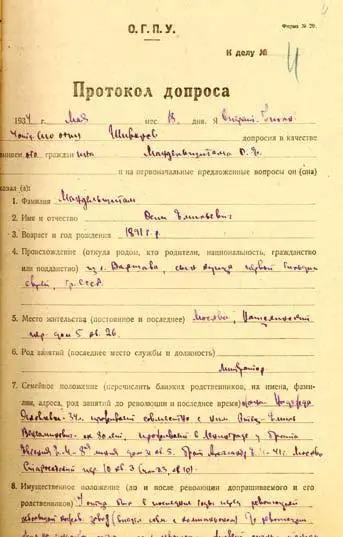 О. Г. П. У.
Форма № 20.
К делу №
4
Протокол допроса
1934 г. Мая мес 18 дня. Я
Шиваров допросил в качестве
обв. гражданина Мандельштама О. Э.
и на первоначальные предложенные вопросы он (она)
показал (а):
1. Фамилия Мандельштам
2. Имя и отчество Осип Эмильевич
3. Возраст и год рождения 1891 г. р.
4. Происхождение (откуда родом, кто родители, национальность, гражданство
или подданство) из г. Варшава, сын купца первой гильдии
еврей, гр. СССР.
5. Место жительства (постоянное и последнее) Москва, Нащокинский
пер. дом 5 кв. 26.
6. Род занятий (последнее место службы и должность)
литератор
7. Семейное положение (перечислить близких родственников, их имена, фами-
лии, адреса, род занятий до революции и последнее время) жена Надежда
Яковлевна 34 л. проживает совместно с ним. Отец Эмиль
Вениаминович 80 лет, проживает в Ленинграде у брата
Евгения дом кв. 5. Брат Александр 41 г. Москва
Старосадский пер. 10 кв. 3
8. Имущественное положение (до и после революции допрашиваемого и его
родственников) У отца был в последние годы перед революцией
завод До революции